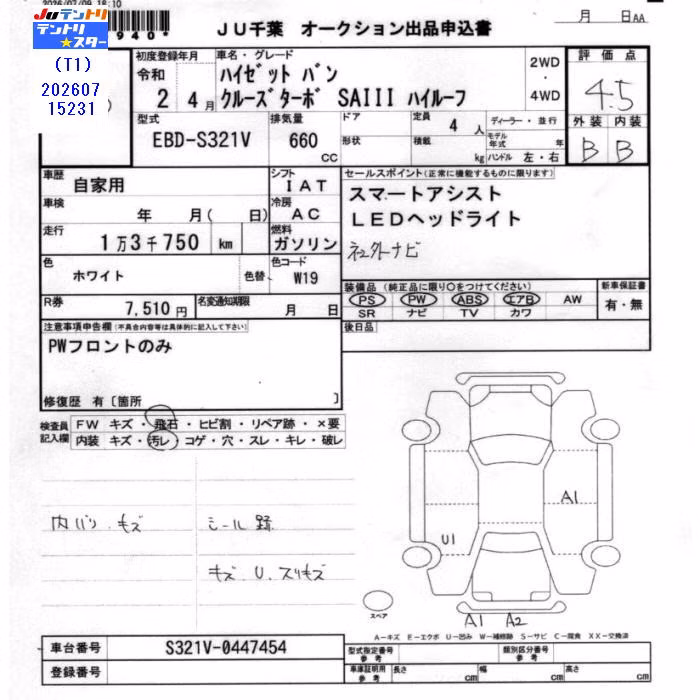 2026/07/09 18:10
JU テントリ
テントリ
★スター
(T1)
202607
15231
940*
JU千葉 オークション出品申込書
月 日AA
初度登録年月
令和
2 4月
車名・グレード
ハイゼット バン
クルーズターボ SAIII ハイルーフ
2WD
・
4WD
評価点
4.5
外装 内装
B B
型式
EBD-S321V
排気量
660
cc
ドア
形状
定員
4 人
積載
kg
ディーラー・並行
モデル年式 年
ハンドル 左・右
車歴
自家用
シフト
IAT
車検
年 月( 日)
冷房
AC
走行
1万3千750 km
燃料
ガソリン
色
ホワイト
色替
色コード
W19
R券
7,510円
名変通知期限
月 日
セールスポイント(正常に機能するものに限ります)
スマートアシスト
LEDヘッドライト
社外ナビ
装備品 (純正品に限り○をつけてください)
PS PW ABS エアB AW
SR ナビ TV カワ
新車保証書
有・無
後日品
注意事項申告欄(不具合内容等は具体的に記入して下さい)
PWフロントのみ
修復歴 有〔箇所 〕
検査員
記入欄
FW キズ・飛石・ヒビ割・リペア跡・×要
内装 キズ・汚レ・コゲ・穴・スレ・キレ・破レ
内バン キズ
シール跡
キズ U. スリキズ
U1
A1
A1 A2
スペア
A-キズ E-エクボ U-凹み W-補修跡 S-サビ C-腐食 XX-交換済
車台番号
S321V-0447454
登録番号
型式指定番号
参考
類別区分番号
参考
車庫証明用
参考
長さ cm
幅 cm
高さ cm